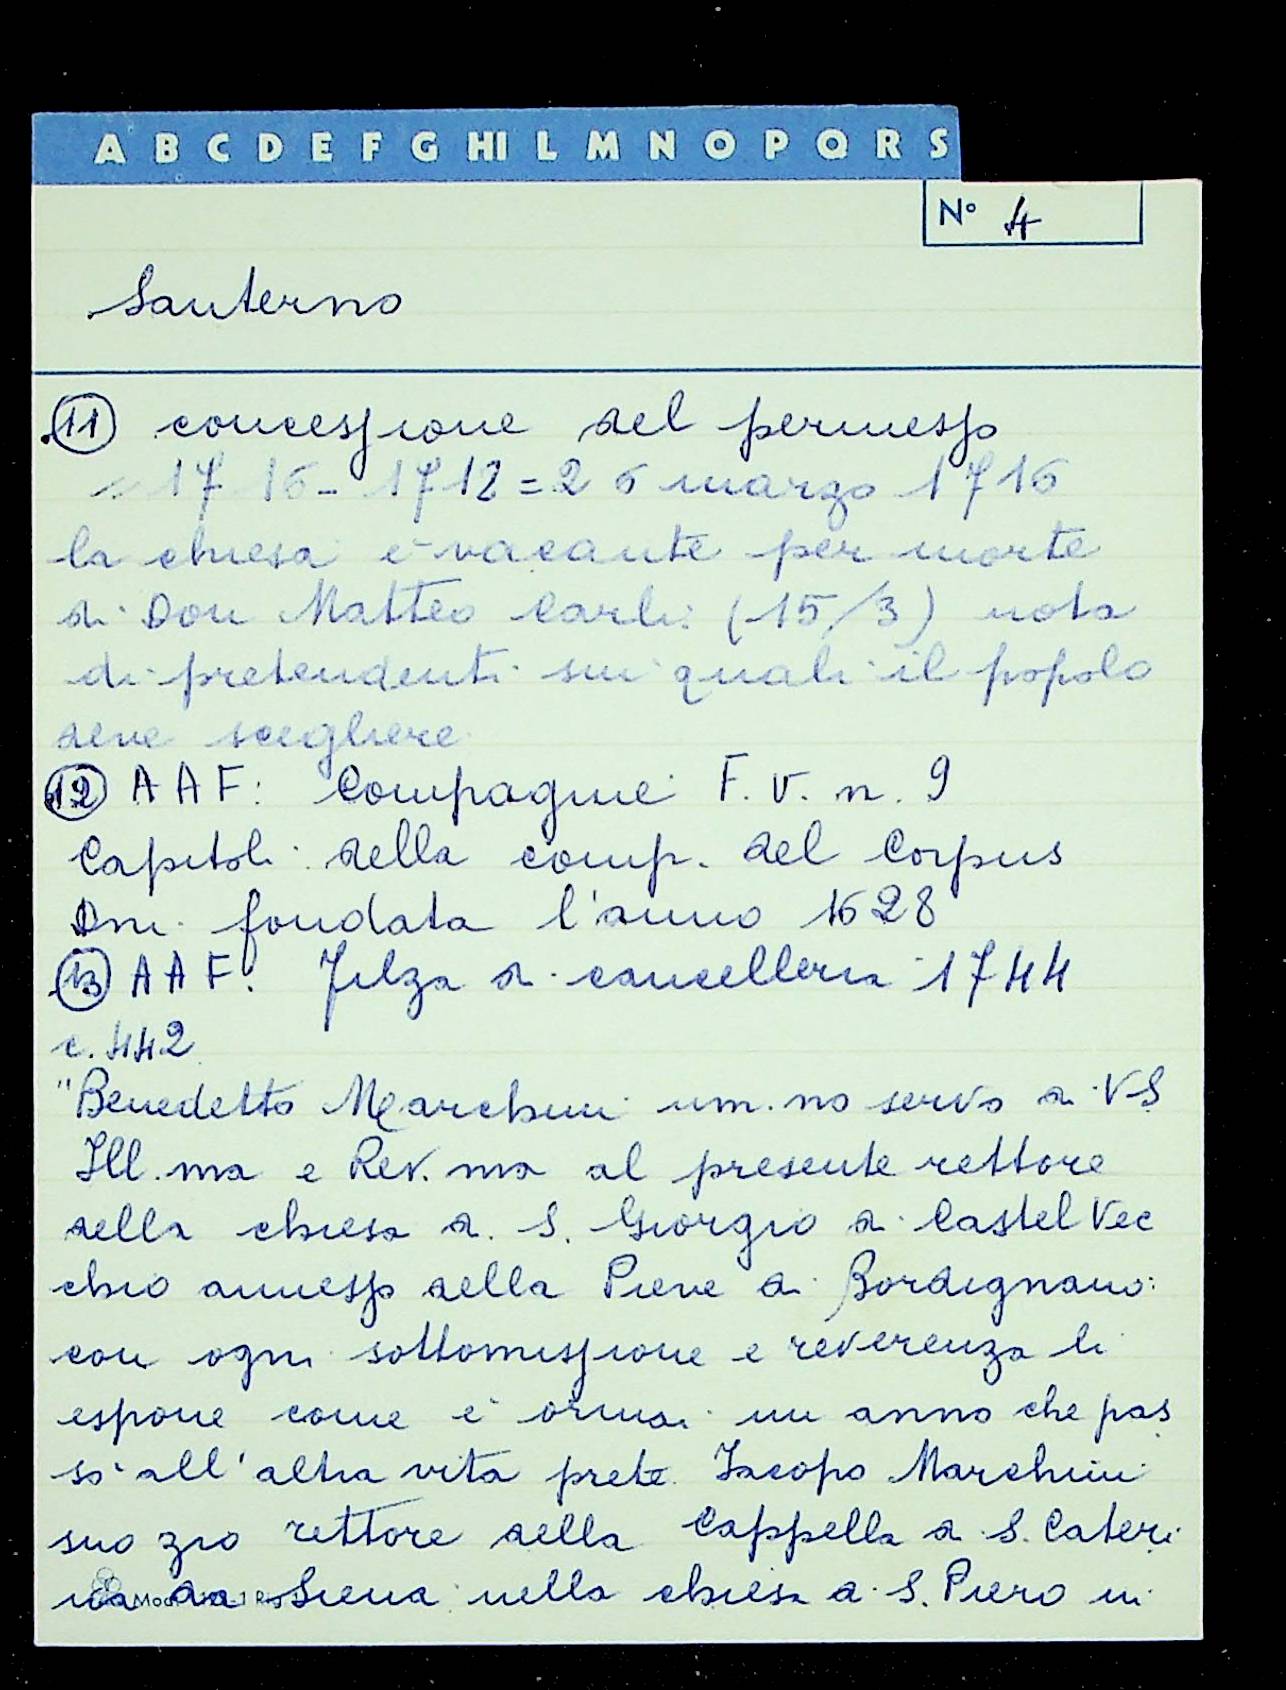 A B C D E F G HI L M N O P Q R S
N° 4
Santerno
11 concessione del permesso
= 1716 - 1712 = 26 marzo 1716
la chiesa è vacante per morte
di Don Matteo Carli (15/3) nota
di pretendenti sui quali il popolo
deve scegliere
12 AAF: Compagnie F. V. n. 9
Capitoli della comp. del Corpus
Dni. fondata l'anno 1628
13 AAF: Filza di cancelleria 1744
c. 442
"Benedetto Marchini um.no servo di VS
Ill.ma e Rev.ma al presente rettore
della chiesa di S. Giorgio di Castel Vec
chio annesso della Pieve di Bordignano:
con ogni sottomissione e reverenza li
espone come è ormai un anno che pas
sò all'altra vita prete Jacopo Marchini
suo zio rettore della Cappella di S. Cateri
na da Siena nella chiesa di S. Piero in